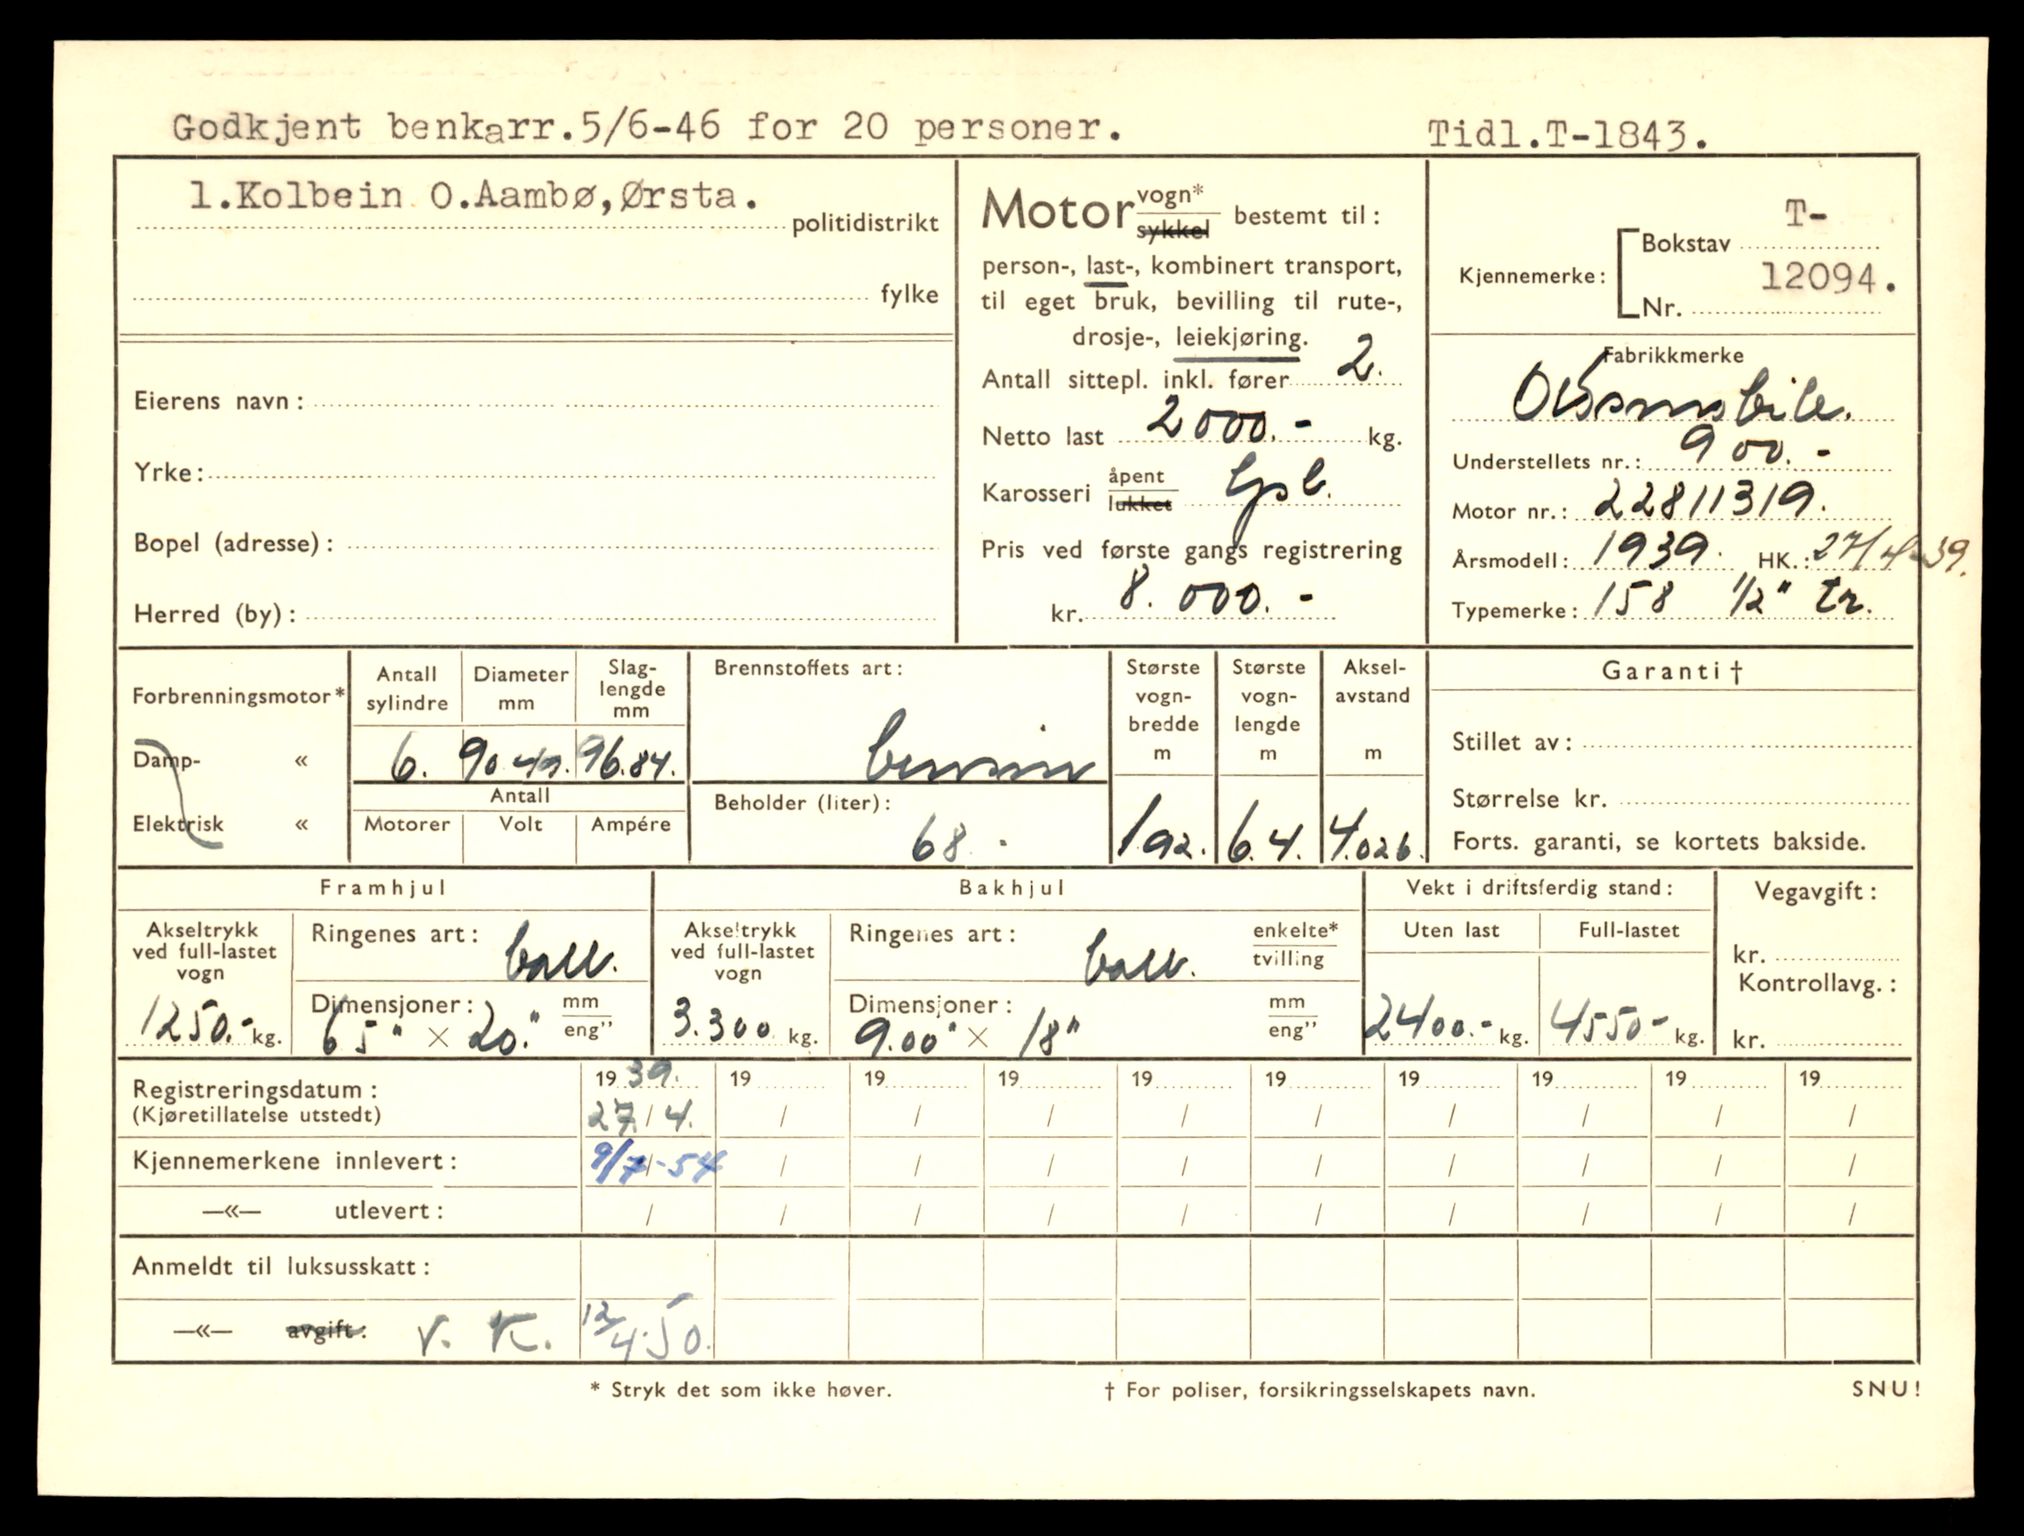 Godkjent benkarr.5/6-46 for 20 personer.
Tidl.T-1843.
1.Kolbein O.Aambø,Ørsta.
politidistrikt
fylke
Eierens navn:
Yrke:
Bopel (adresse):
Herred (by):
Motor vogn* sykkel bestemt til:
person-, last-, kombinert transport,
til eget bruk, bevilling til rute-,
drosje-, leiekjøring.
Antall sittepl. inkl. fører 2.
Netto last 2000.- kg.
Karosseri åpent lukket
Pris ved første gangs registrering
kr. 8.000.-
Kjennemerke: Bokstav T-
Nr. 12094.
Fabrikkmerke
Oldsmobile.
Understellets nr.: 900.-
Motor nr.: 22811319.
Årsmodell: 1939. HK.: 27/4-39.
Typemerke: 158 1/2" tr.
Forbrenningsmotor*
Damp- «
Elektrisk «
Antall sylindre
Diameter mm
Slag-lengde mm
6. 90.49. 96.84.
Antall
Motorer Volt Ampére
Brennstoffets art:
bensin
Beholder (liter):
68.
Største vogn-bredde m
1.92.
Største vogn-lengde m
6.4.
Aksel-avstand m
4.026.
Garanti†
Stillet av:
Størrelse kr.
Forts. garanti, se kortets bakside.
Framhjul
Akseltrykk ved full-lastet vogn
1250.- kg.
Ringenes art: ball.
Dimensjoner: mm eng"
65" × 20."
Bakhjul
Akseltrykk ved full-lastet vogn
3.300 kg.
Ringenes art: ball. enkelte* tvilling
Dimensjoner: mm eng"
9.00" × 18"
Vekt i driftsferdig stand:
Uten last Full-lastet
2400.- kg. 4550- kg.
Vegavgift:
kr.
Kontrollavg.:
kr.
Registreringsdatum:
(Kjøretillatelse utstedt)
1939. 19 19 19 19 19 19 19 19 19
27./4. / / / / / / / / /
Kjennemerkene innlevert: 9/7-54 / / / / / / / / /
—«— utlevert: / / / / / / / / / /
Anmeldt til luksusskatt:
—«— avgift: V. K. 12/4.50.
* Stryk det som ikke høver.
† For poliser, forsikringsselskapets navn.
SNU!